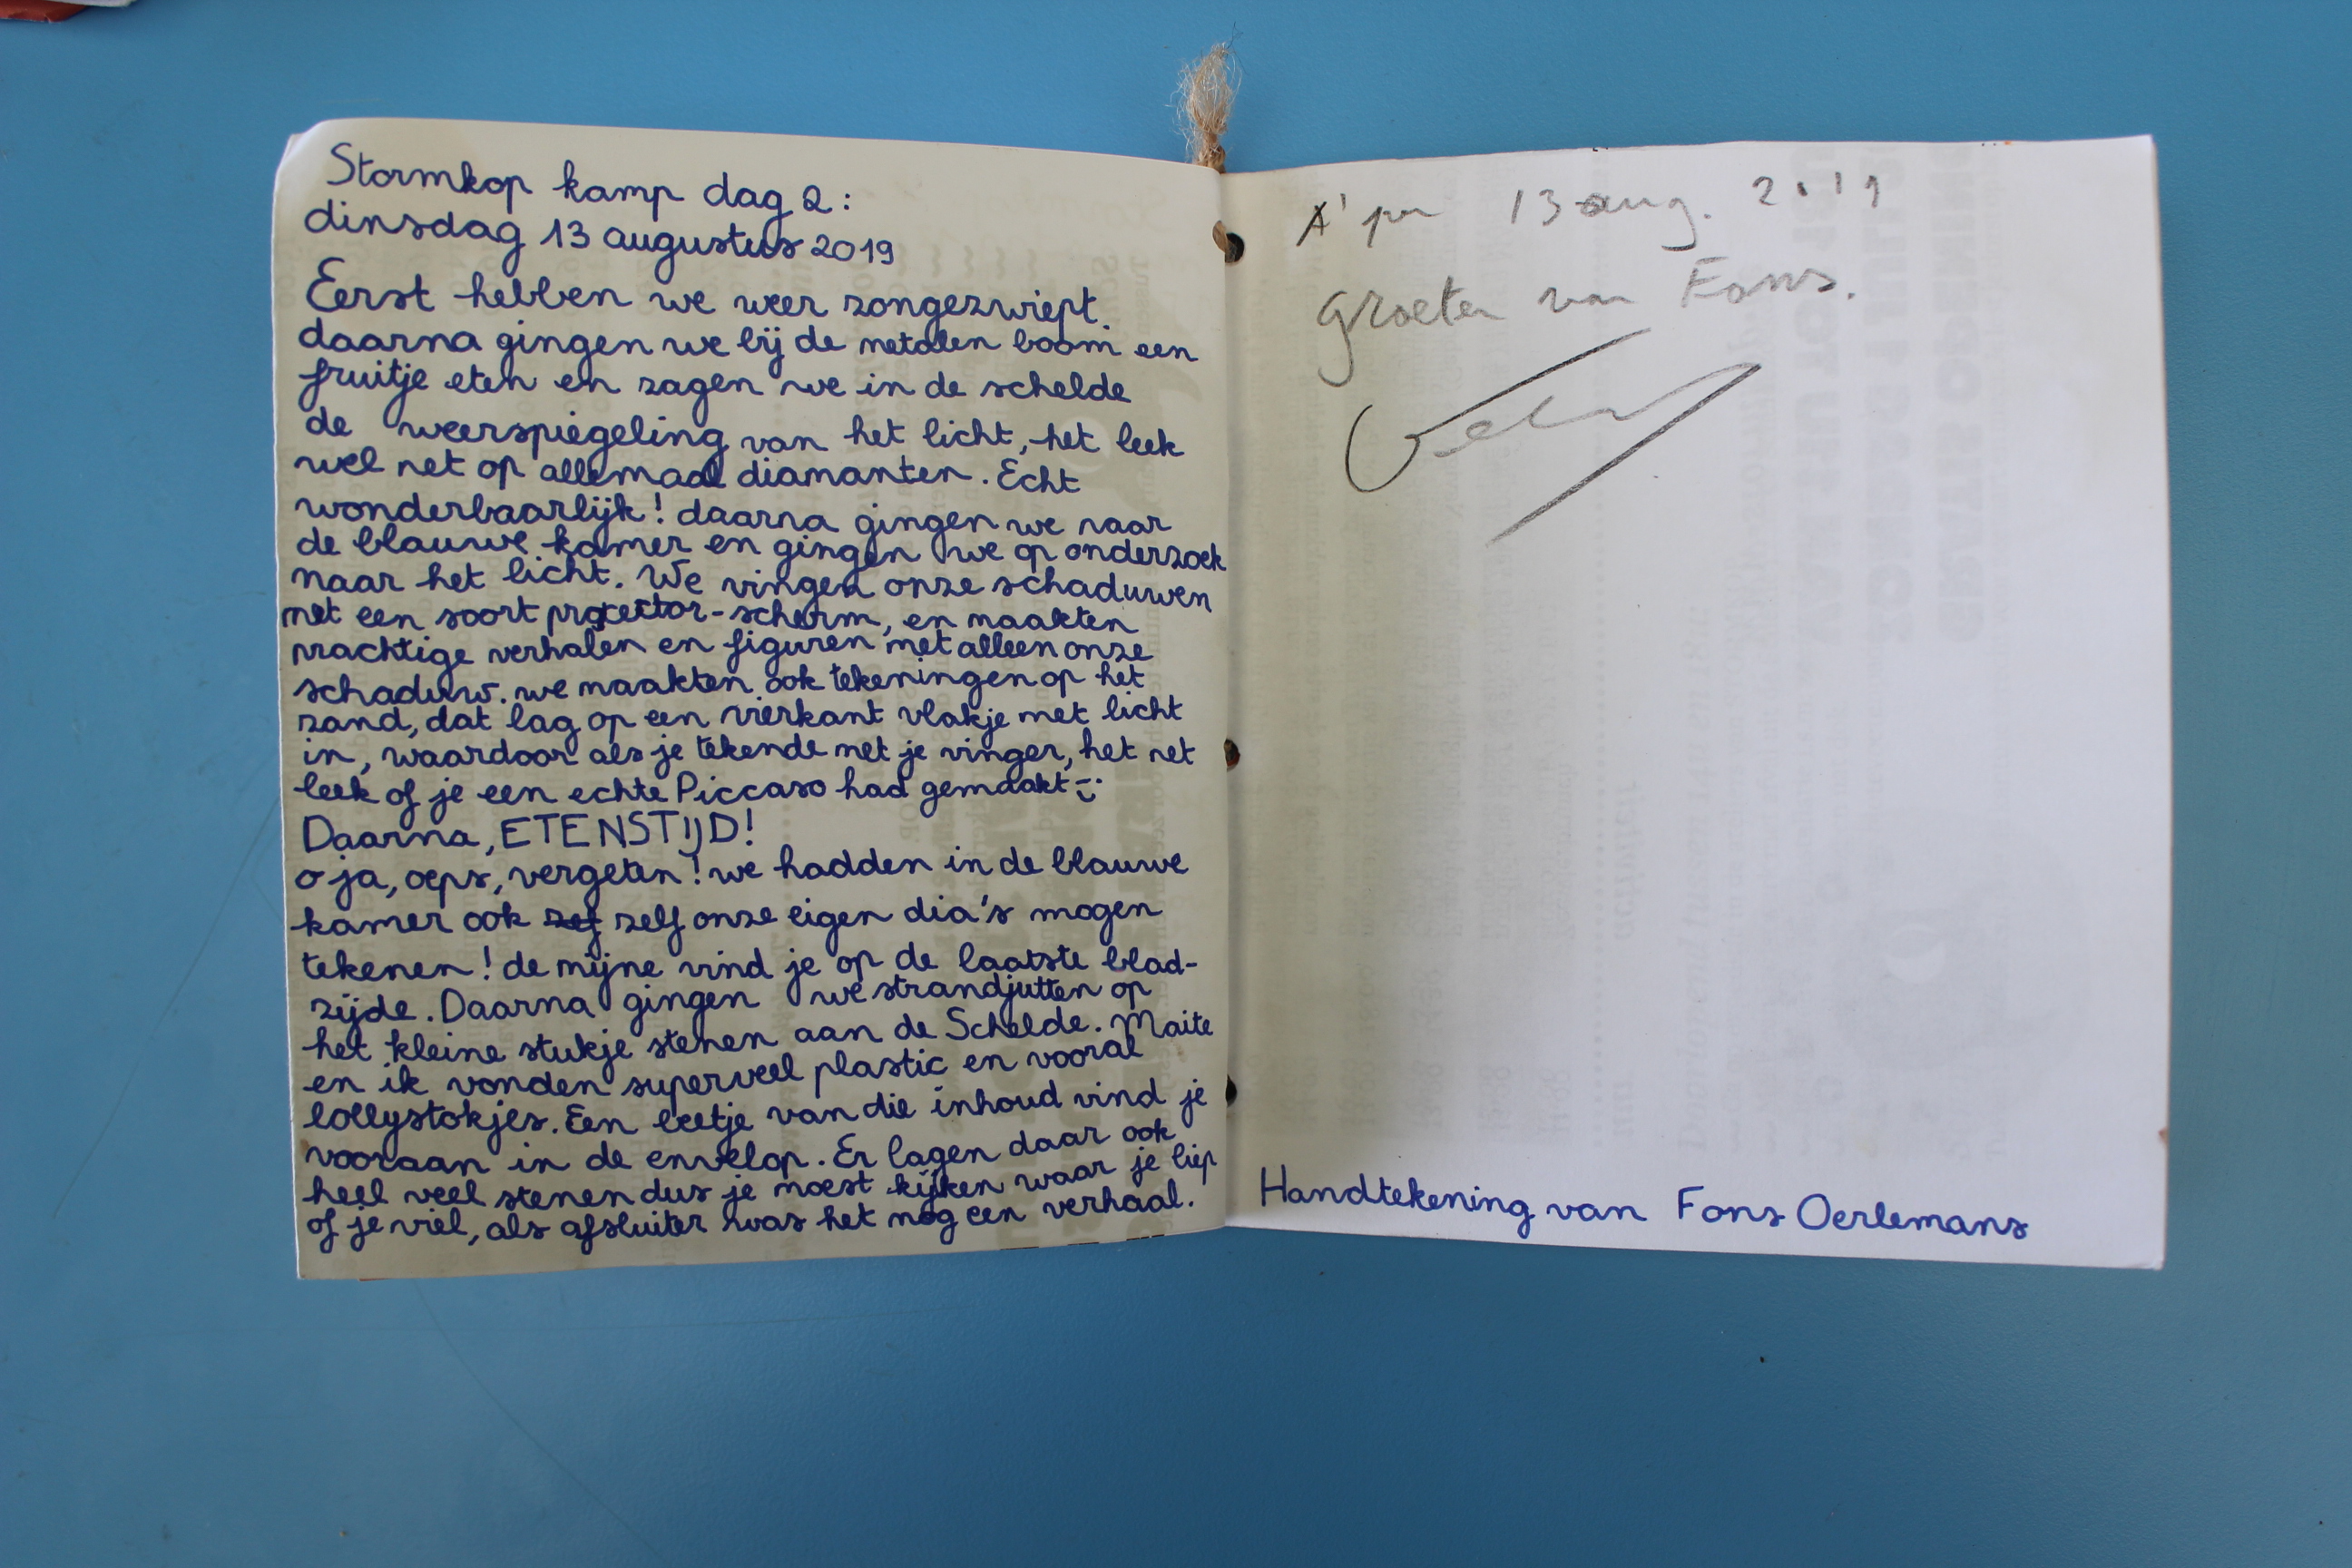 Stormkop kamp dag 2:
dinsdag 13 augustus 2019
Eerst hebben we weer zongezwiept.
daarna gingen we bij de metalen boom een
fruitje eten en zagen we in de schelde
de weerspiegeling van het licht, het leek
wel net op allemaal diamanten. Echt
wonderbaarlijk! daarna gingen we naar
de blauwe kamer en gingen we op onderzoek
naar het licht. We vingen onze schaduwen
met een soort projector-scherm, en maakten
prachtige verhalen en figuren met alleen onze
schaduw. we maakten ook tekeningen op het
zand, dat lag op een vierkant vlakje met licht
in, waardoor als je tekende met je vinger, het net
leek of je een echte Piccaso had gemaakt
Daarna, ETENSTIJD!
o ja, oeps, vergeten! we hadden in de blauwe
kamer ook zelf onze eigen dia's mogen
tekenen! de mijne vind je op de laatste blad-
zijde. Daarna gingen we strandjutten op
het kleine stukje stenen aan de Schelde. Maite
en ik vonden superveel plastic en vooral
lollystokjes. Een beetje van die inhoud vind je
vooraan in de envelop. Er lagen daar ook
heel veel stenen dus je moest kijken waar je liep
of je viel, als afsluiter was het nog een verhaal.
A'pen 13 aug. 2019
groeten van Fons.
Handtekening van Fons Oerlemans